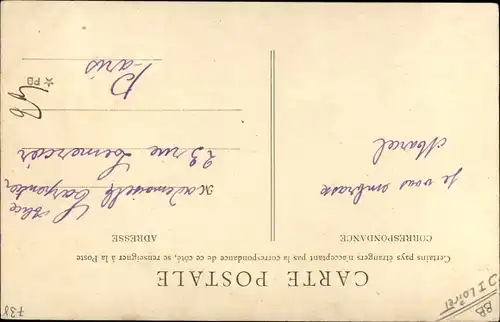 CARTE POSTALE
Certains pays étrangers n'acceptant pas la correspondance de ce côté, se renseigner à la Poste
CORRESPONDANCE
ADRESSE
Je vous embrasse
Marcel
Mademoiselle Alice
Carpentier
23 rue Lemercier
Paris
★ PD
738
BB